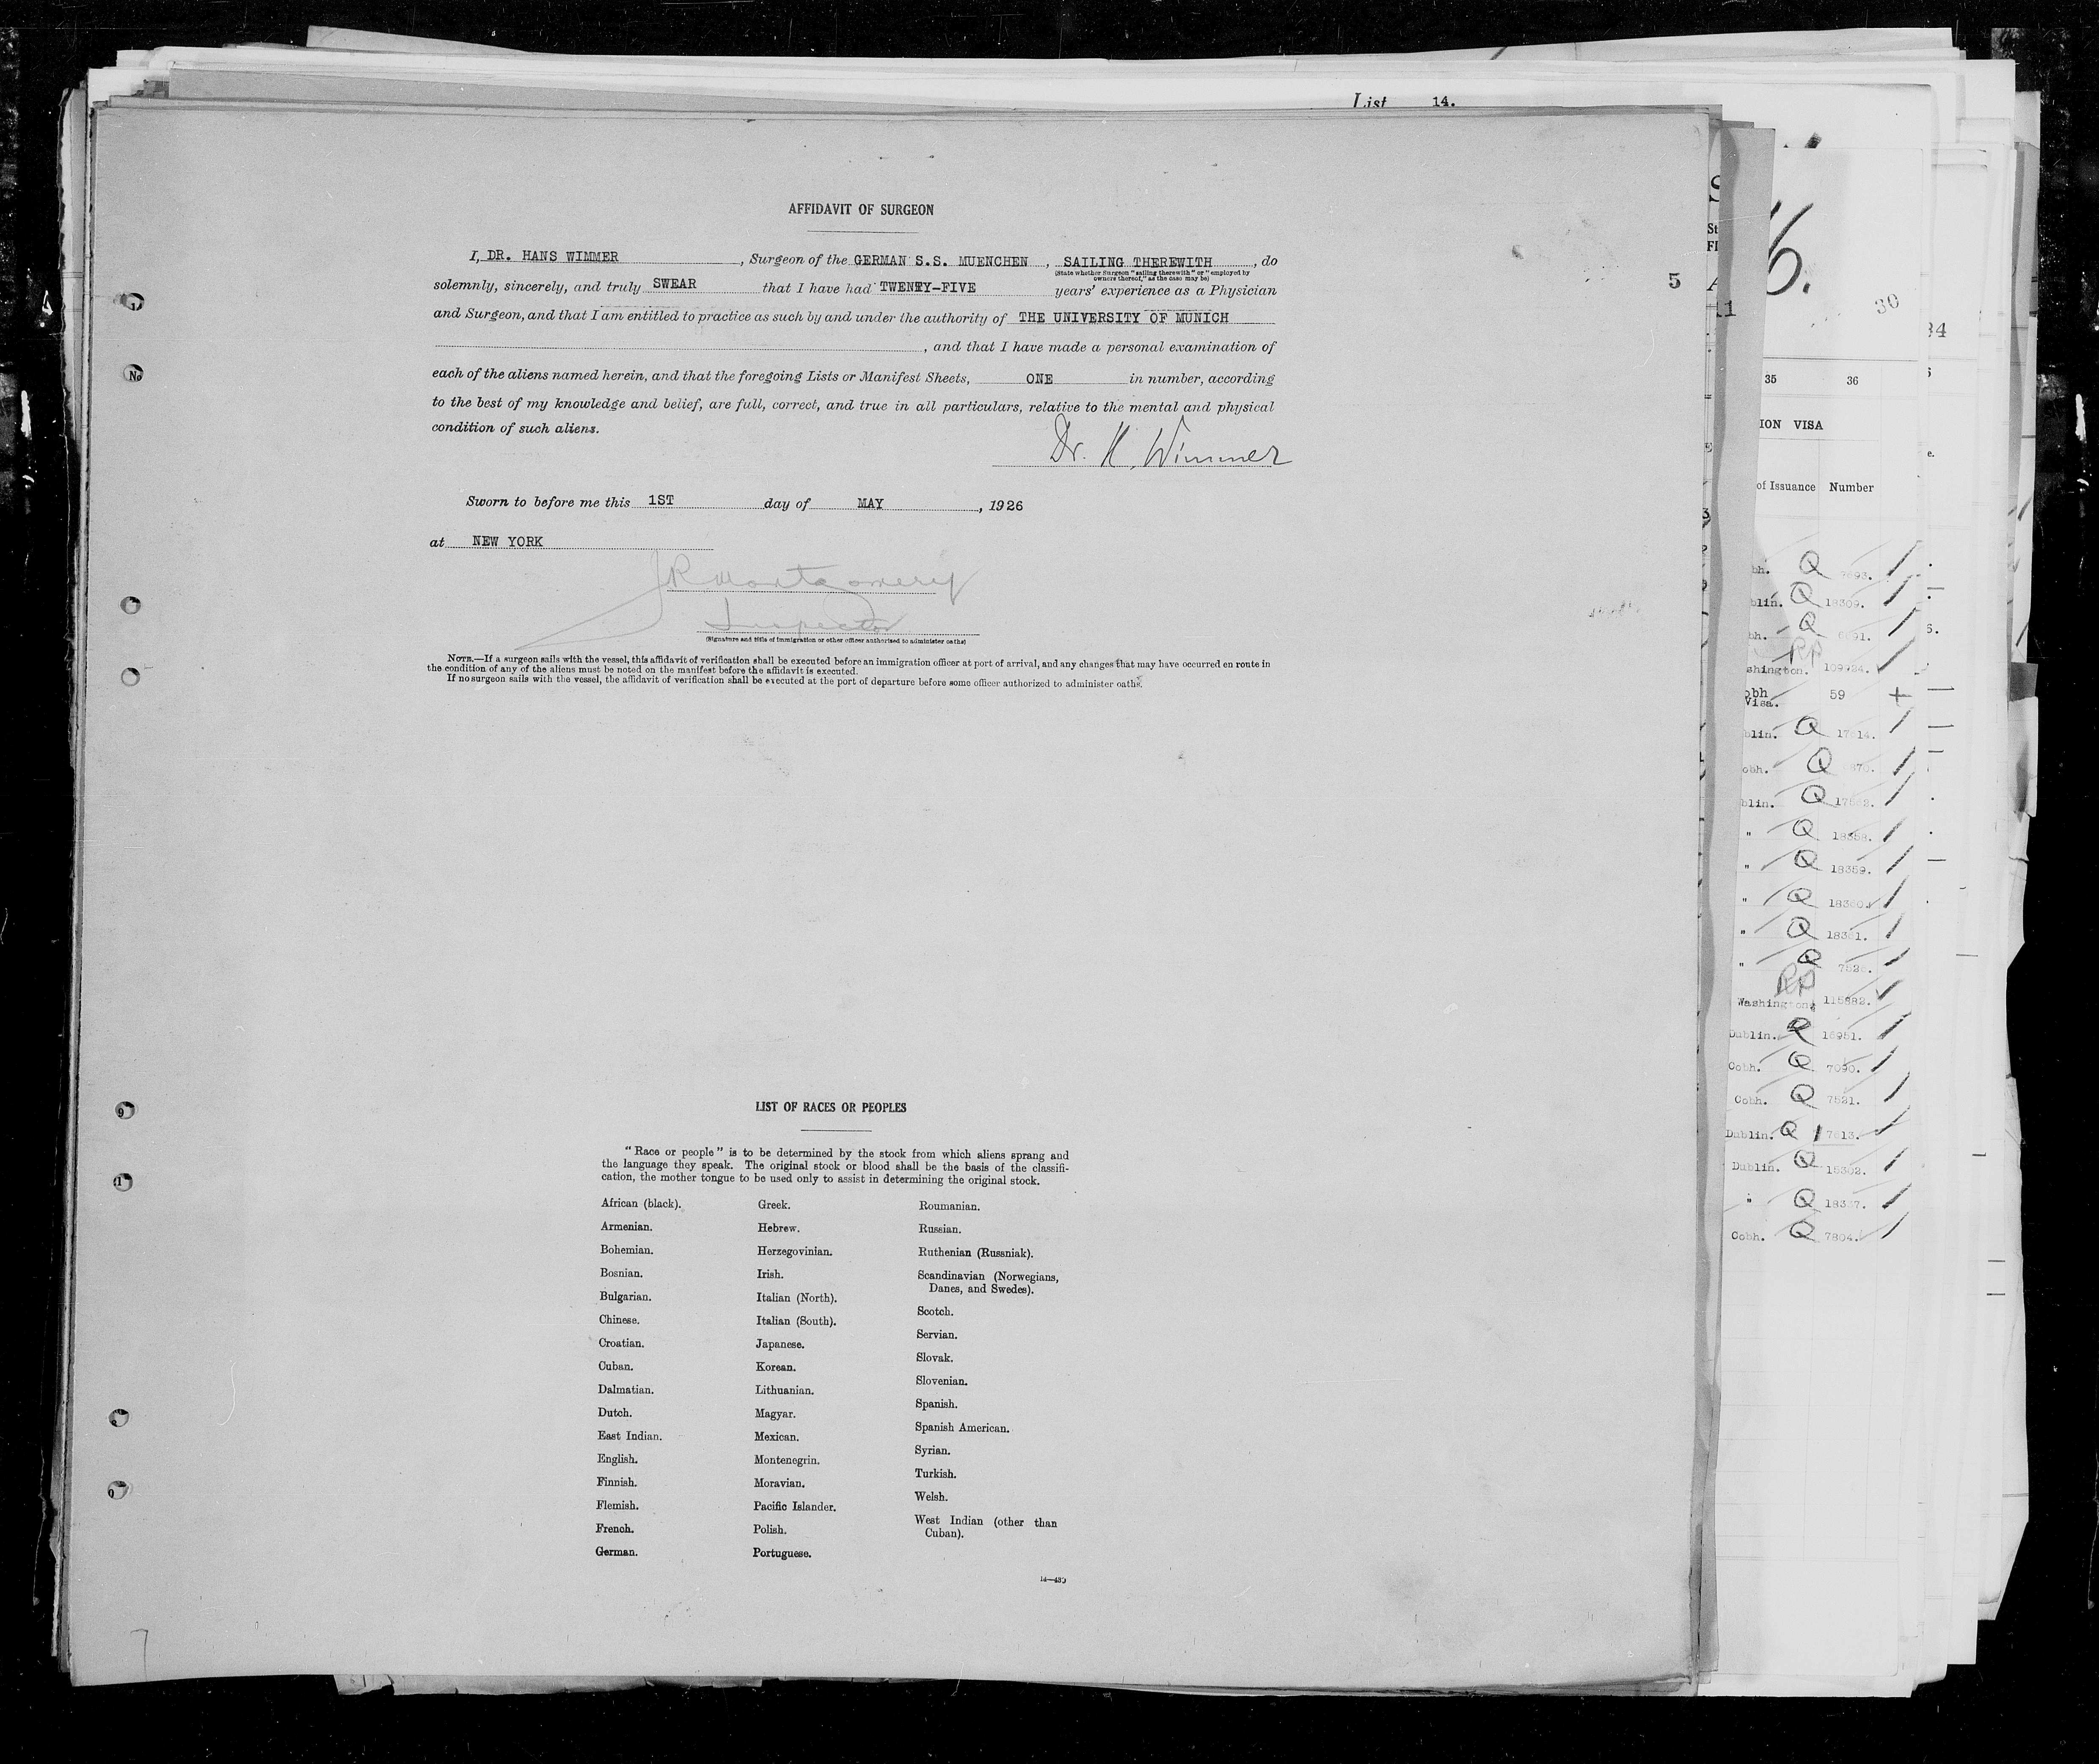 List 14.
AFFIDAVIT OF SURGEON
I, DR. HANS WIMMER, Surgeon of the GERMAN S.S. MUENCHEN, SAILING THEREWITH, do
(State whether Surgeon "sailing therewith" or "employed by
owners thereof," as the case may be)
solemnly, sincerely, and truly SWEAR that I have had TWENTY-FIVE years' experience as a Physician
and Surgeon, and that I am entitled to practice as such by and under the authority of THE UNIVERSITY OF MUNICH
, and that I have made a personal examination of
each of the aliens named herein, and that the foregoing Lists or Manifest Sheets, ONE in number, according
to the best of my knowledge and belief, are full, correct, and true in all particulars, relative to the mental and physical
condition of such aliens.
Dr. H. Wimmer
Sworn to before me this 1ST day of MAY, 1926
at NEW YORK
J R Montgomery
Inspector
(Signature and title of immigration or other officer authorized to administer oaths)
NOTE.—If a surgeon sails with the vessel, this affidavit of verification shall be executed before an immigration officer at port of arrival, and any changes that may have occurred en route in
the condition of any of the aliens must be noted on the manifest before the affidavit is executed.
If no surgeon sails with the vessel, the affidavit of verification shall be executed at the port of departure before some officer authorized to administer oaths.
5
LIST OF RACES OR PEOPLES
"Race or people" is to be determined by the stock from which aliens sprang and
the language they speak. The original stock or blood shall be the basis of the classifi-
cation, the mother tongue to be used only to assist in determining the original stock.
African (black).
Armenian.
Bohemian.
Bosnian.
Bulgarian.
Chinese.
Croatian.
Cuban.
Dalmatian.
Dutch.
East Indian.
English.
Finnish.
Flemish.
French.
German.
Greek.
Hebrew.
Herzegovinian.
Irish.
Italian (North).
Italian (South).
Japanese.
Korean.
Lithuanian.
Magyar.
Mexican.
Montenegrin.
Moravian.
Pacific Islander.
Polish.
Portuguese.
Roumanian.
Russian.
Ruthenian (Russniak).
Scandinavian (Norwegians,
Danes, and Swedes).
Scotch.
Servian.
Slovak.
Slovenian.
Spanish.
Spanish American.
Syrian.
Turkish.
Welsh.
West Indian (other than
Cuban).
14—430
6.
30
35 36
ION VISA
of Issuance Number
blin. Q 18309.
shington. RP 109924.
obh 59
Visa.
blin. Q
obh. Q
blin. Q
" Q 18358.
" Q 18359.
" Q 18360.
" Q 18361.
" Q
RP
Washington. 115882.
Dublin. Q 16951.
Cobh. Q 7090.
Cobh. Q 7521.
Dublin. Q
Dublin. Q 15302.
" Q 18357.
Cobh. Q 7804.